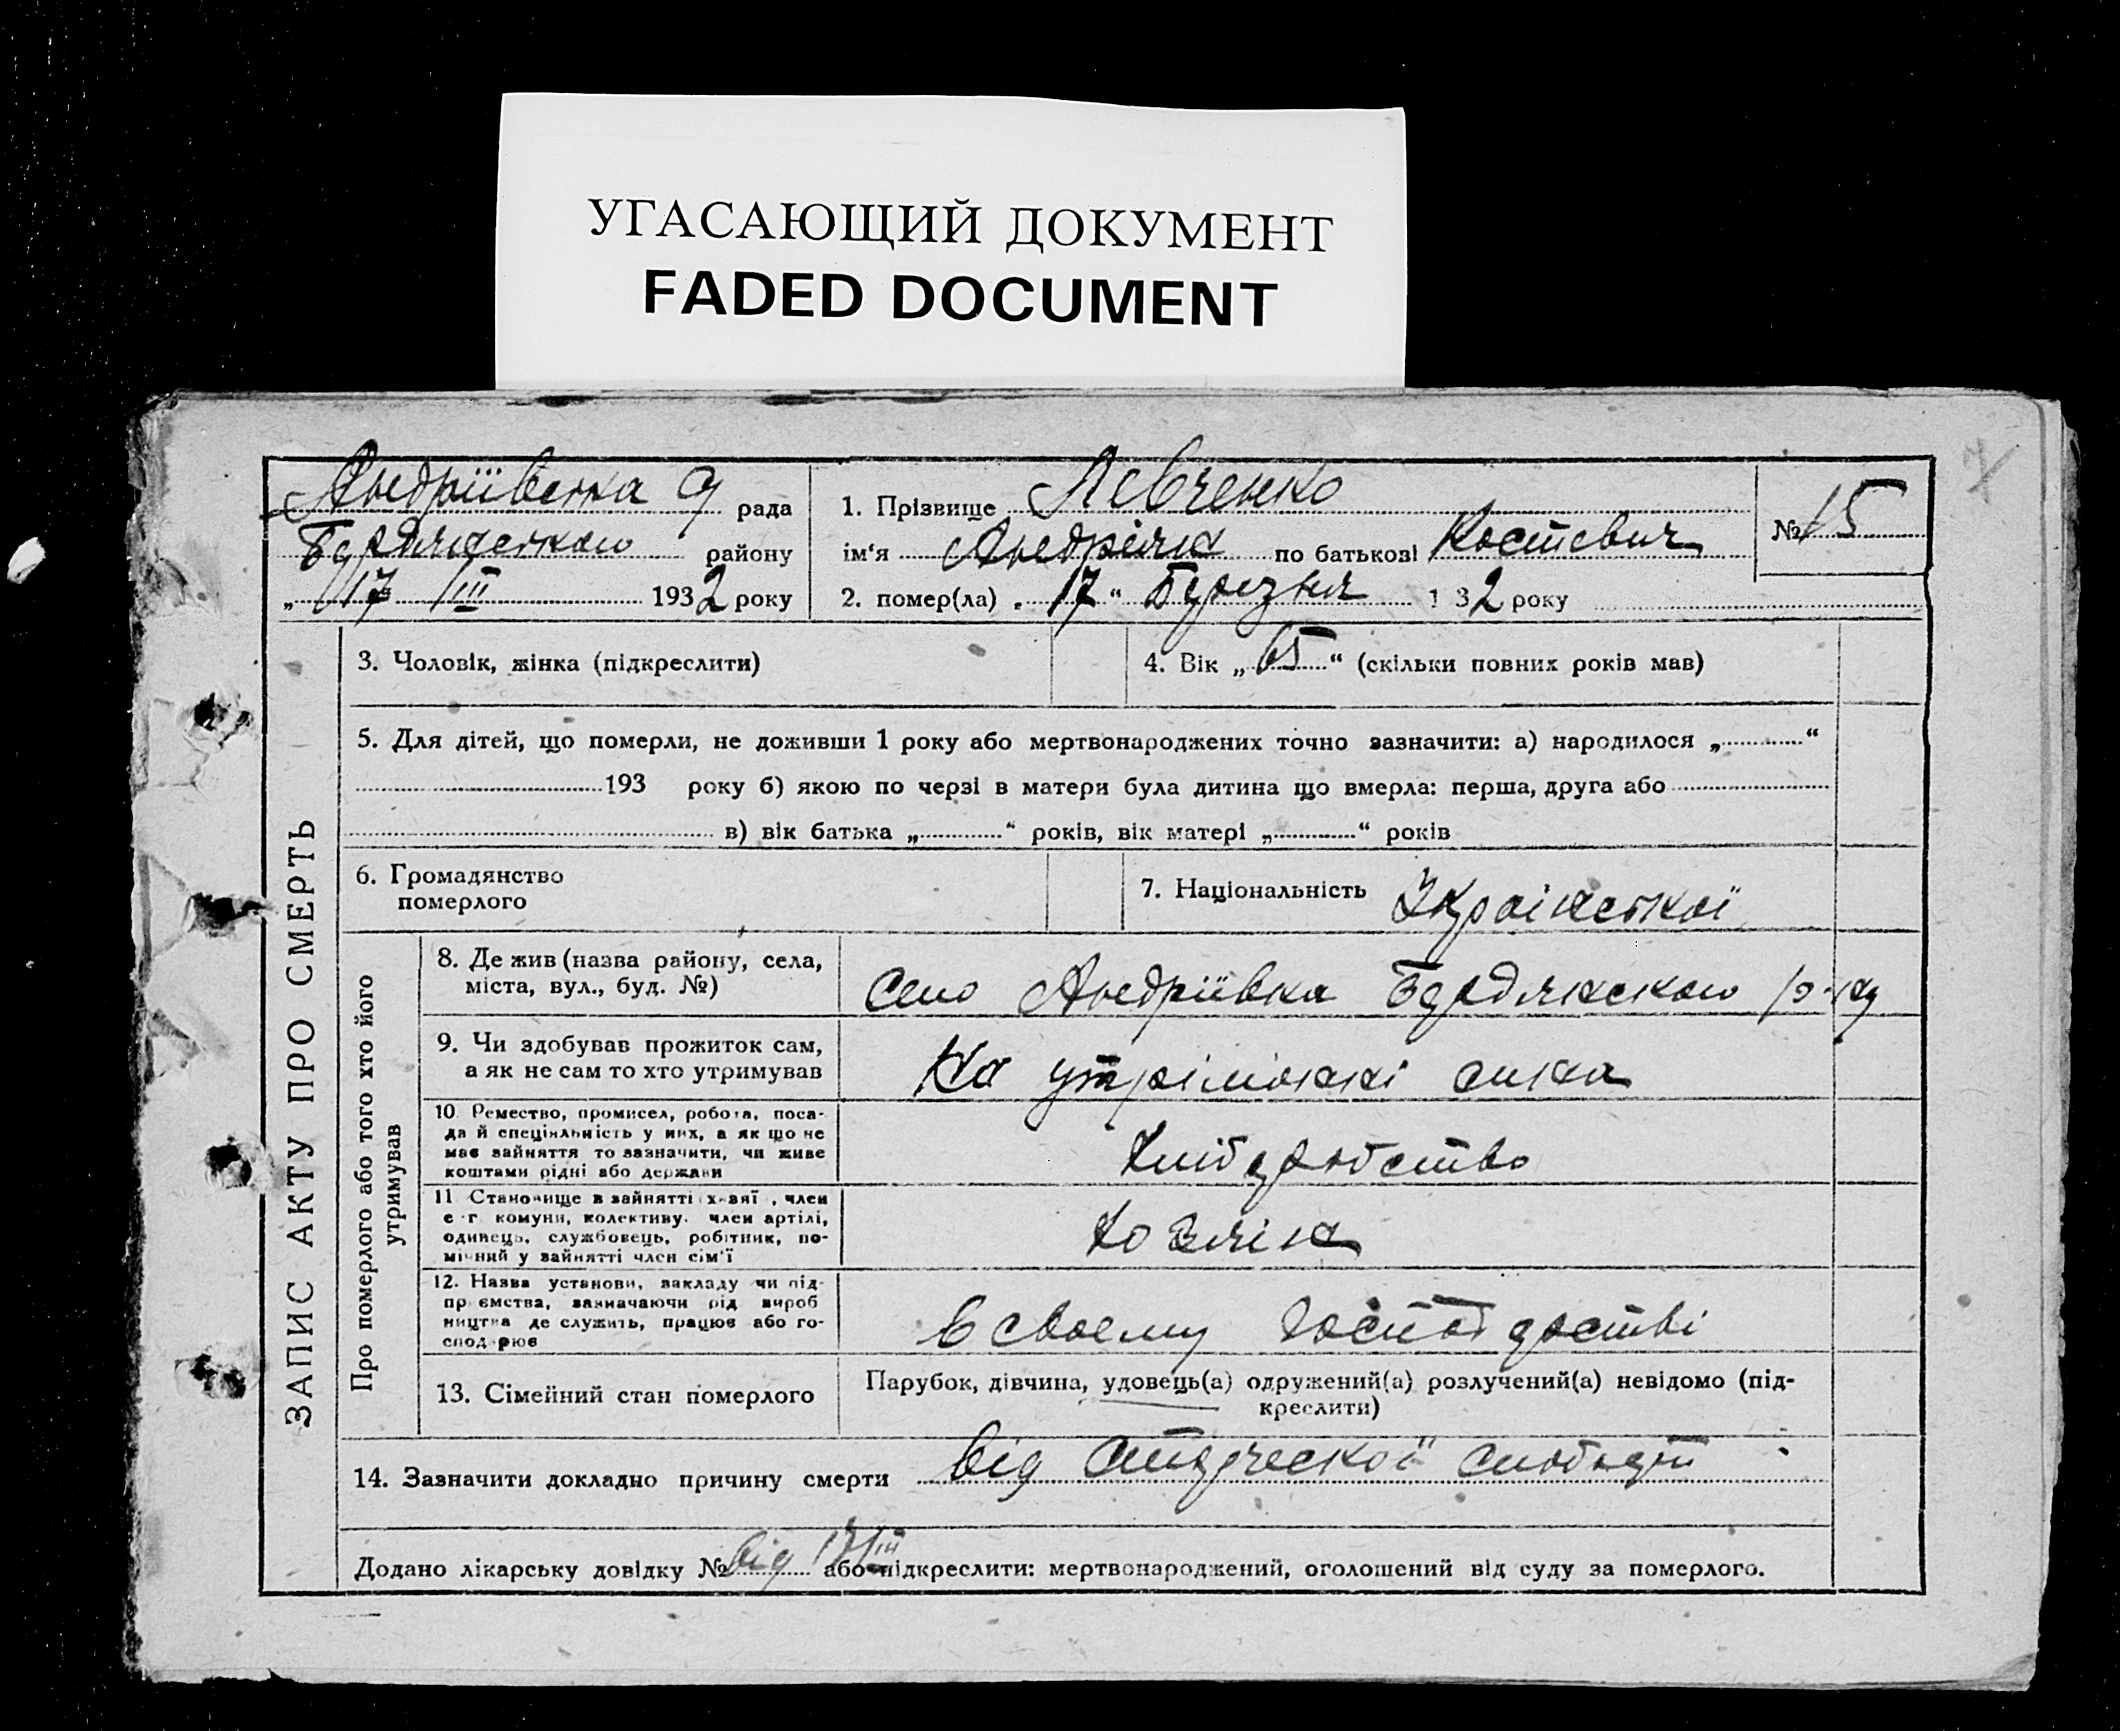 УГАСАЮЩИЙ ДОКУМЕНТ
FADED DOCUMENT
7
Андріївська с/ рада
Бердянського району
„ 17 ІІІ 1932 року
1. Прізвище Левченко
ім‘я Андріян по батькові Костевич
2. помер(ла) „ 17 “ Березня 1 32 року
№ 15
ЗАПИС АКТУ ПРО СМЕРТЬ
3. Чоловік, жінка (підкреслити)
4. Вік „ 65 “ (скільки повних років мав)
5. Для дітей, що померли, не доживши 1 року або мертвонароджених точно зазначити: а) народилося „ “
193 року б) якою по черзі в матери була дитина що вмерла: перша, друга або
в) вік батька „ “ років, вік матері „ “ років
6. Громадянство
померлого
7. Національність Українській
Про померлого або того хто його
утримував
8. Де жив (назва району, села,
міста, вул., буд. №)
село Андріївка Бердянского р-ну
9. Чи здобував прожиток сам,
а як не сам то хто утримував
На утріманні сина
10. Ремество, промисел, робота, поса-
да й спеціяльність у них, а як що не
має зайняття то зазначити, чи живе
коштами рідні або держави
хліборобство
11 Становище в зайнятті хазяї , член
с-г комуни, колективу. член артілі,
одинець, службовець, робітник, по-
мічний у зайнятті член сім‘ї
хозяїн
12. Назва установи, закладу чи під-
пр ємства, зазначаючи рід вироб
ництва де служить, працює або го-
сподарює
в своему господарстві
13. Сімейний стан померлого
Парубок, дівчина, удовець(а) одружений(а) розлучений(а) невідомо (під-
креслити)
14. Зазначити докладно причину смерти від старческой
Додано лікарську довідку № від 17/ІІІ або підкреслити: мертвонароджений, оголошений від суду за померлого.